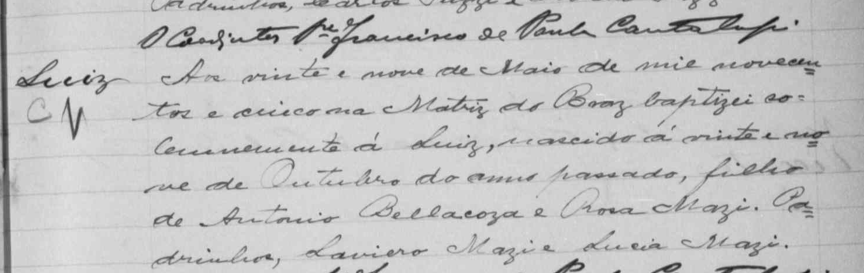 O Coadjutor Pre Francisco de Paula Cantalupi
Luiz Aos vinte e nove de Maio de mil novecen=
tos e cinco na Matriz do Braz baptizei so=
lemnemente á Luiz, nascido á vinte e no=
ve de Outubro do anno passado, filho
de Antonio Bellacoza e Rosa Mazi. Pa=
drinhos, Saviero Mazi e Lucia Mazi.